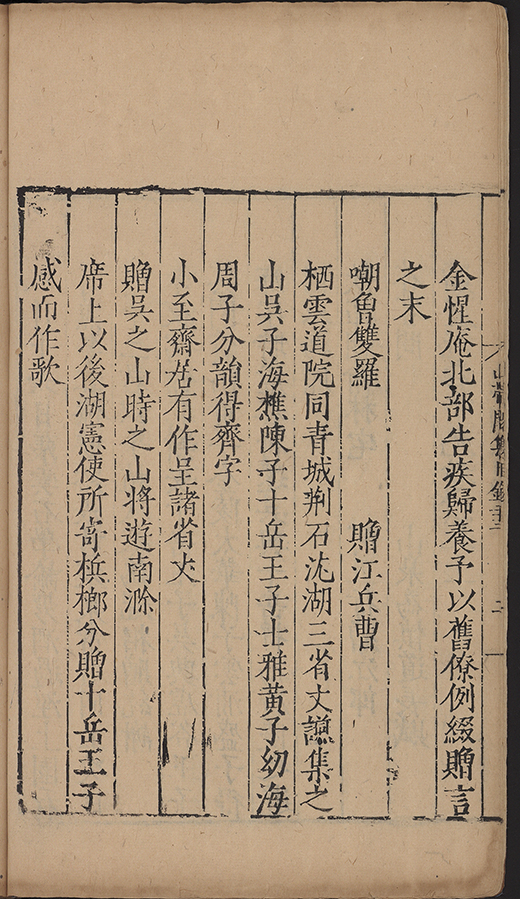 金惺庵北部告疾歸養予以舊僚例綴贈言
之末
嘲魯雙羅 贈江兵曹
栖雲道院同青城荆石沈湖三省丈讌集之
山吳子海樵陳子十岳王子士雅黃子幼海
周子分韻得齊字
小至齋居有作呈諸省丈
贈吳之山時之山將遊南滁
席上以後湖憲使所寄梹榔分贈十岳王子
感而作歌